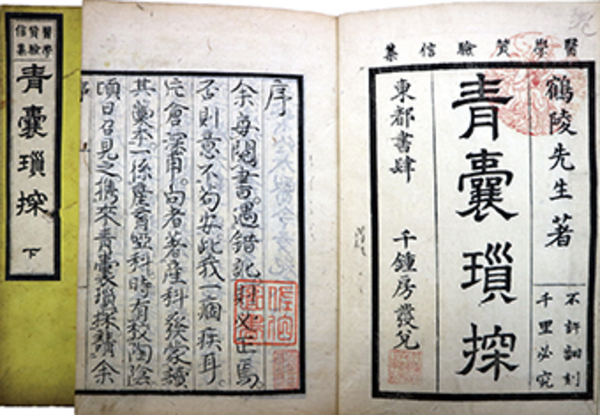 醫學
質驗
信集
青囊瑣探
下
醫學質驗信集
鶴陵先生著
不許翻刻
千里必究
青囊瑣探
東都書肆 千鍾房發兌
序
余每閱書。遇錯訛則必正焉。
否則意不勾安。此我一痼疾耳。
倉深甫。向者著産科發蒙讀
其藁本。一係産育啞科。時有陶陰
頃日召見之携來青囊瑣探請余
序